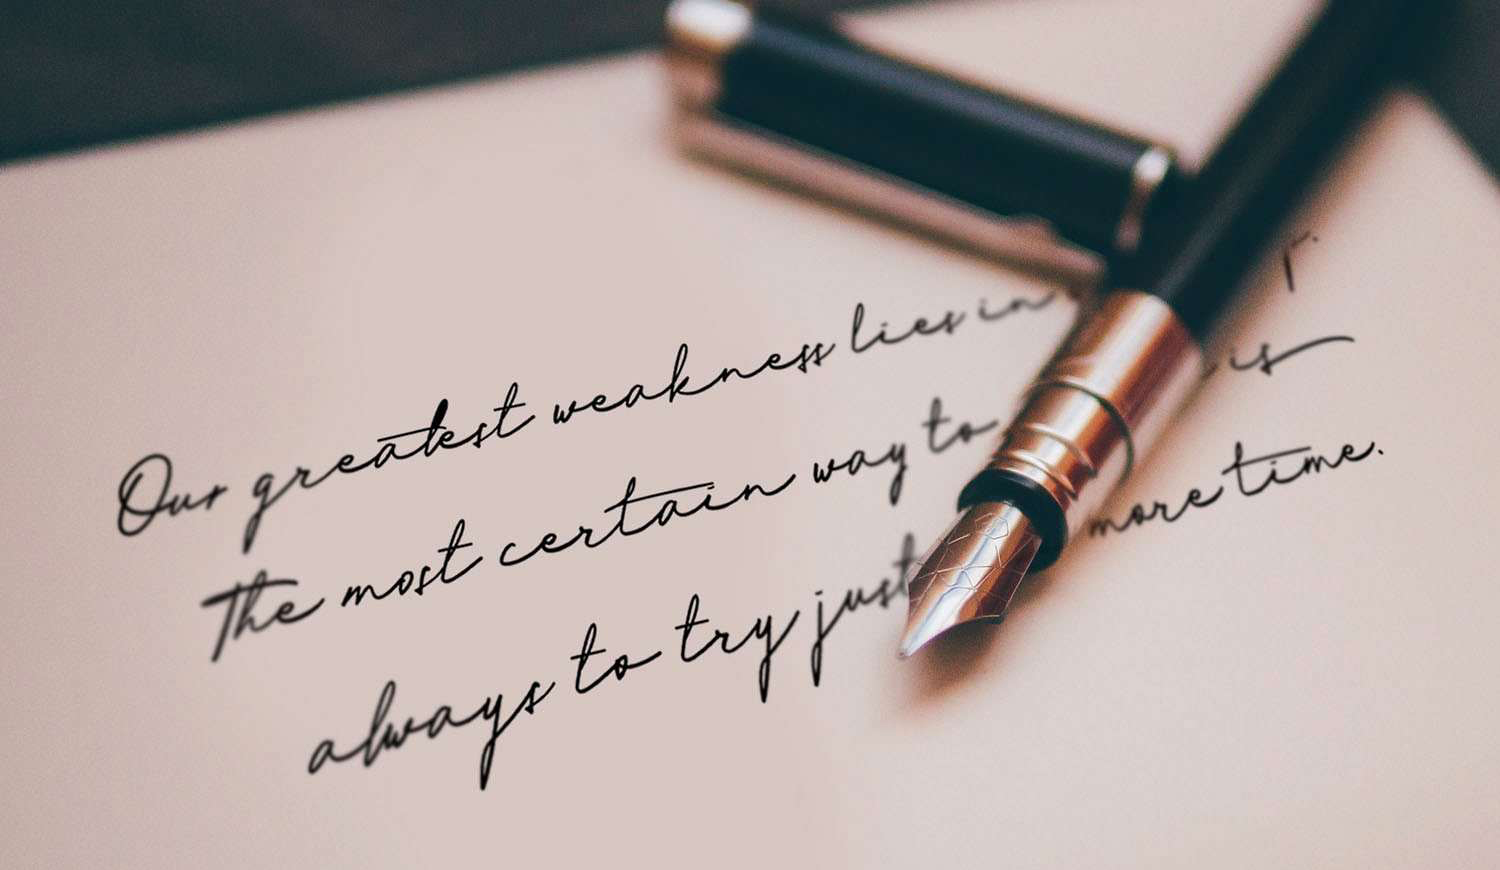 Our greatest weakness lies in
The most certain way to is
always to try just more time.